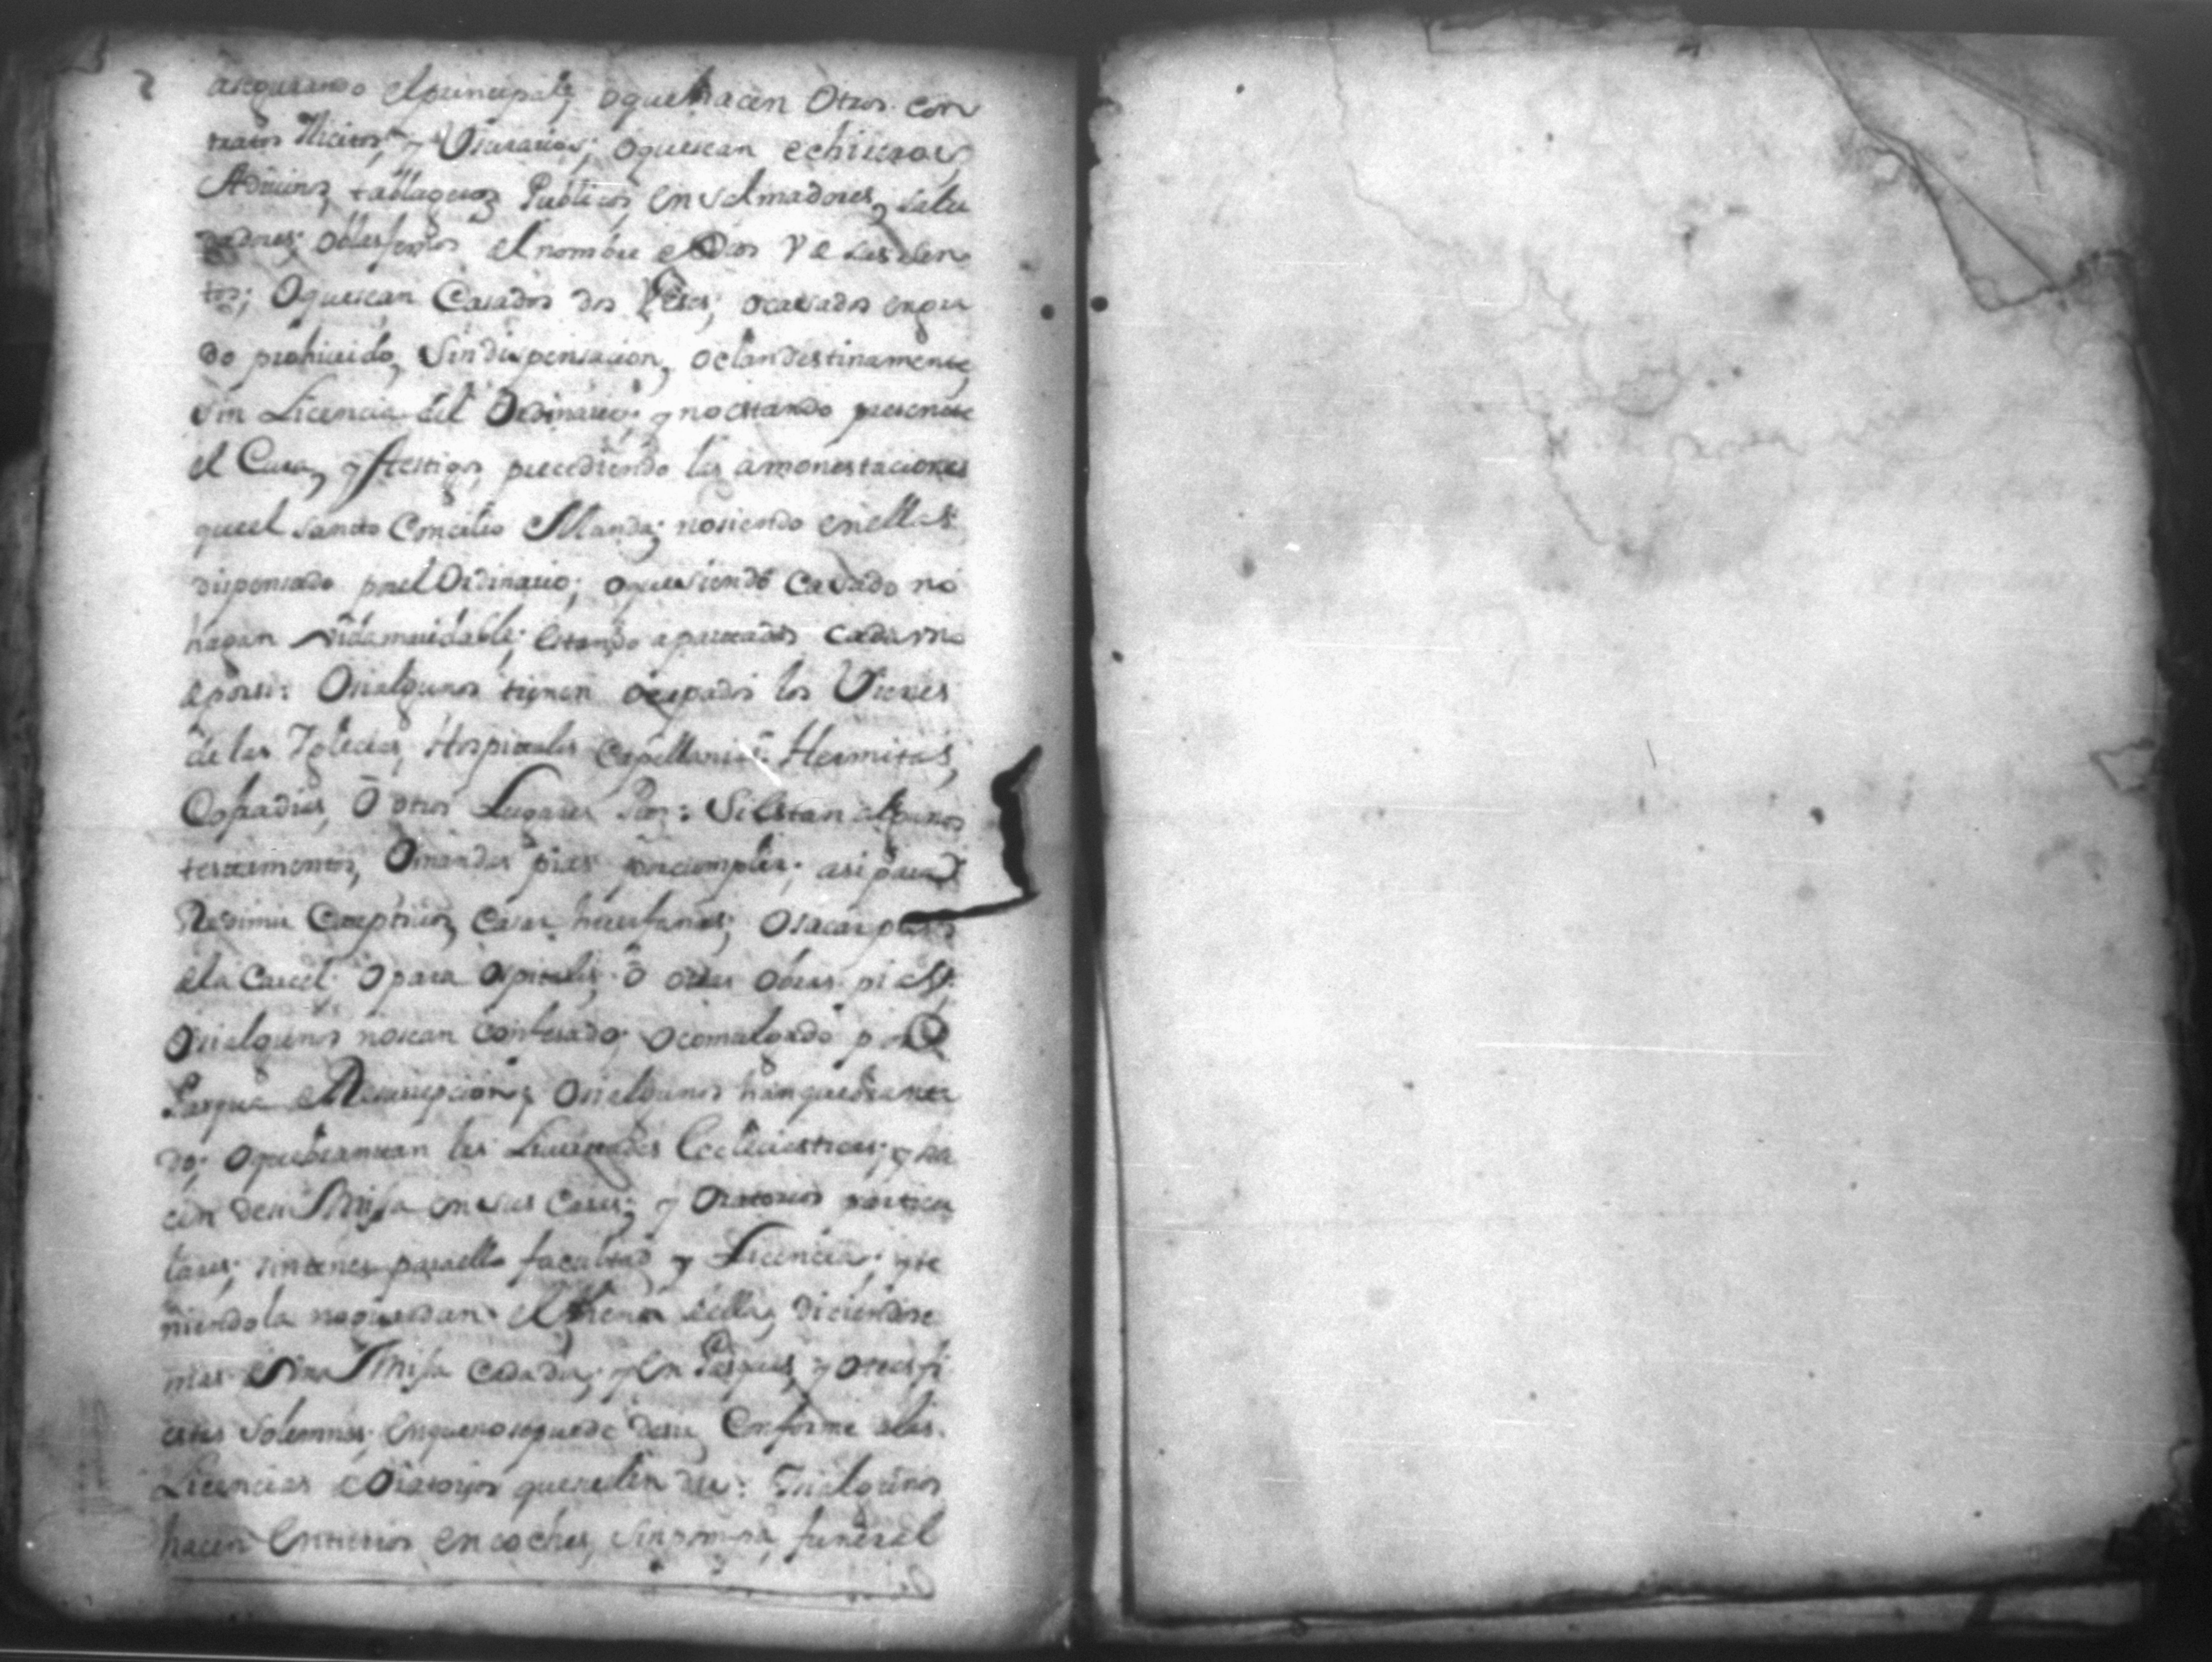 asegurando el principal, o que hacen Otros con
tratos Ilicitos, y Usurarios; o que sean echiceros,
Adivinos, tablageros Publicos, Ensalmadores, salu
dadores; o blasfemos el nombre de Dios y de sus San
tos; O que sean Casados dos Veces, o casados en gra
do prohivido, Sin dispensacion, o clandestinamente,
sin Licencia del Ordinario; y no estando presente
el Cura, y testigos, precediendo las amonestaciones
que el santo Concilio Manda; no siendo en ellas
dispensado por el Ordinario; o que siendo Casado no
hagan vida maridable; Estando apartados cada uno
de por si: O si algunos tienen ocupados los Vienes
de las Iglecias, Hospitales Capellanias Hermitas,
Cofradias, O otros Lugares Pios: Si Estan algunos
testamentos, O mandas pias por cumplir; asi para
Redimir Captivos, Casar huerfanas; O sacar presos
de la Carcel. O para Ospitales, O otras Obras pias.
O si algunos no sean confesado; o comulgado por la
Pasqua de Resurrepcion; O si algunos han quebranta
do; o quebrantan las Ecleciasticas; y ha
cen decir Missa en sus Casas; y Oratorios particu
lares; sin tener para ello facultad y Licencia; y te
niendola no guardan el thenor de ella, diciendose
mas de Una Missa cada dia; y En Pasquas, y otras fi
estas solemnes; En que no se puede decir, Conforme a las
Licencias de Oratorios que suelen dar: Y si algunos
hacen Entierros en coches, sin pompa funeral